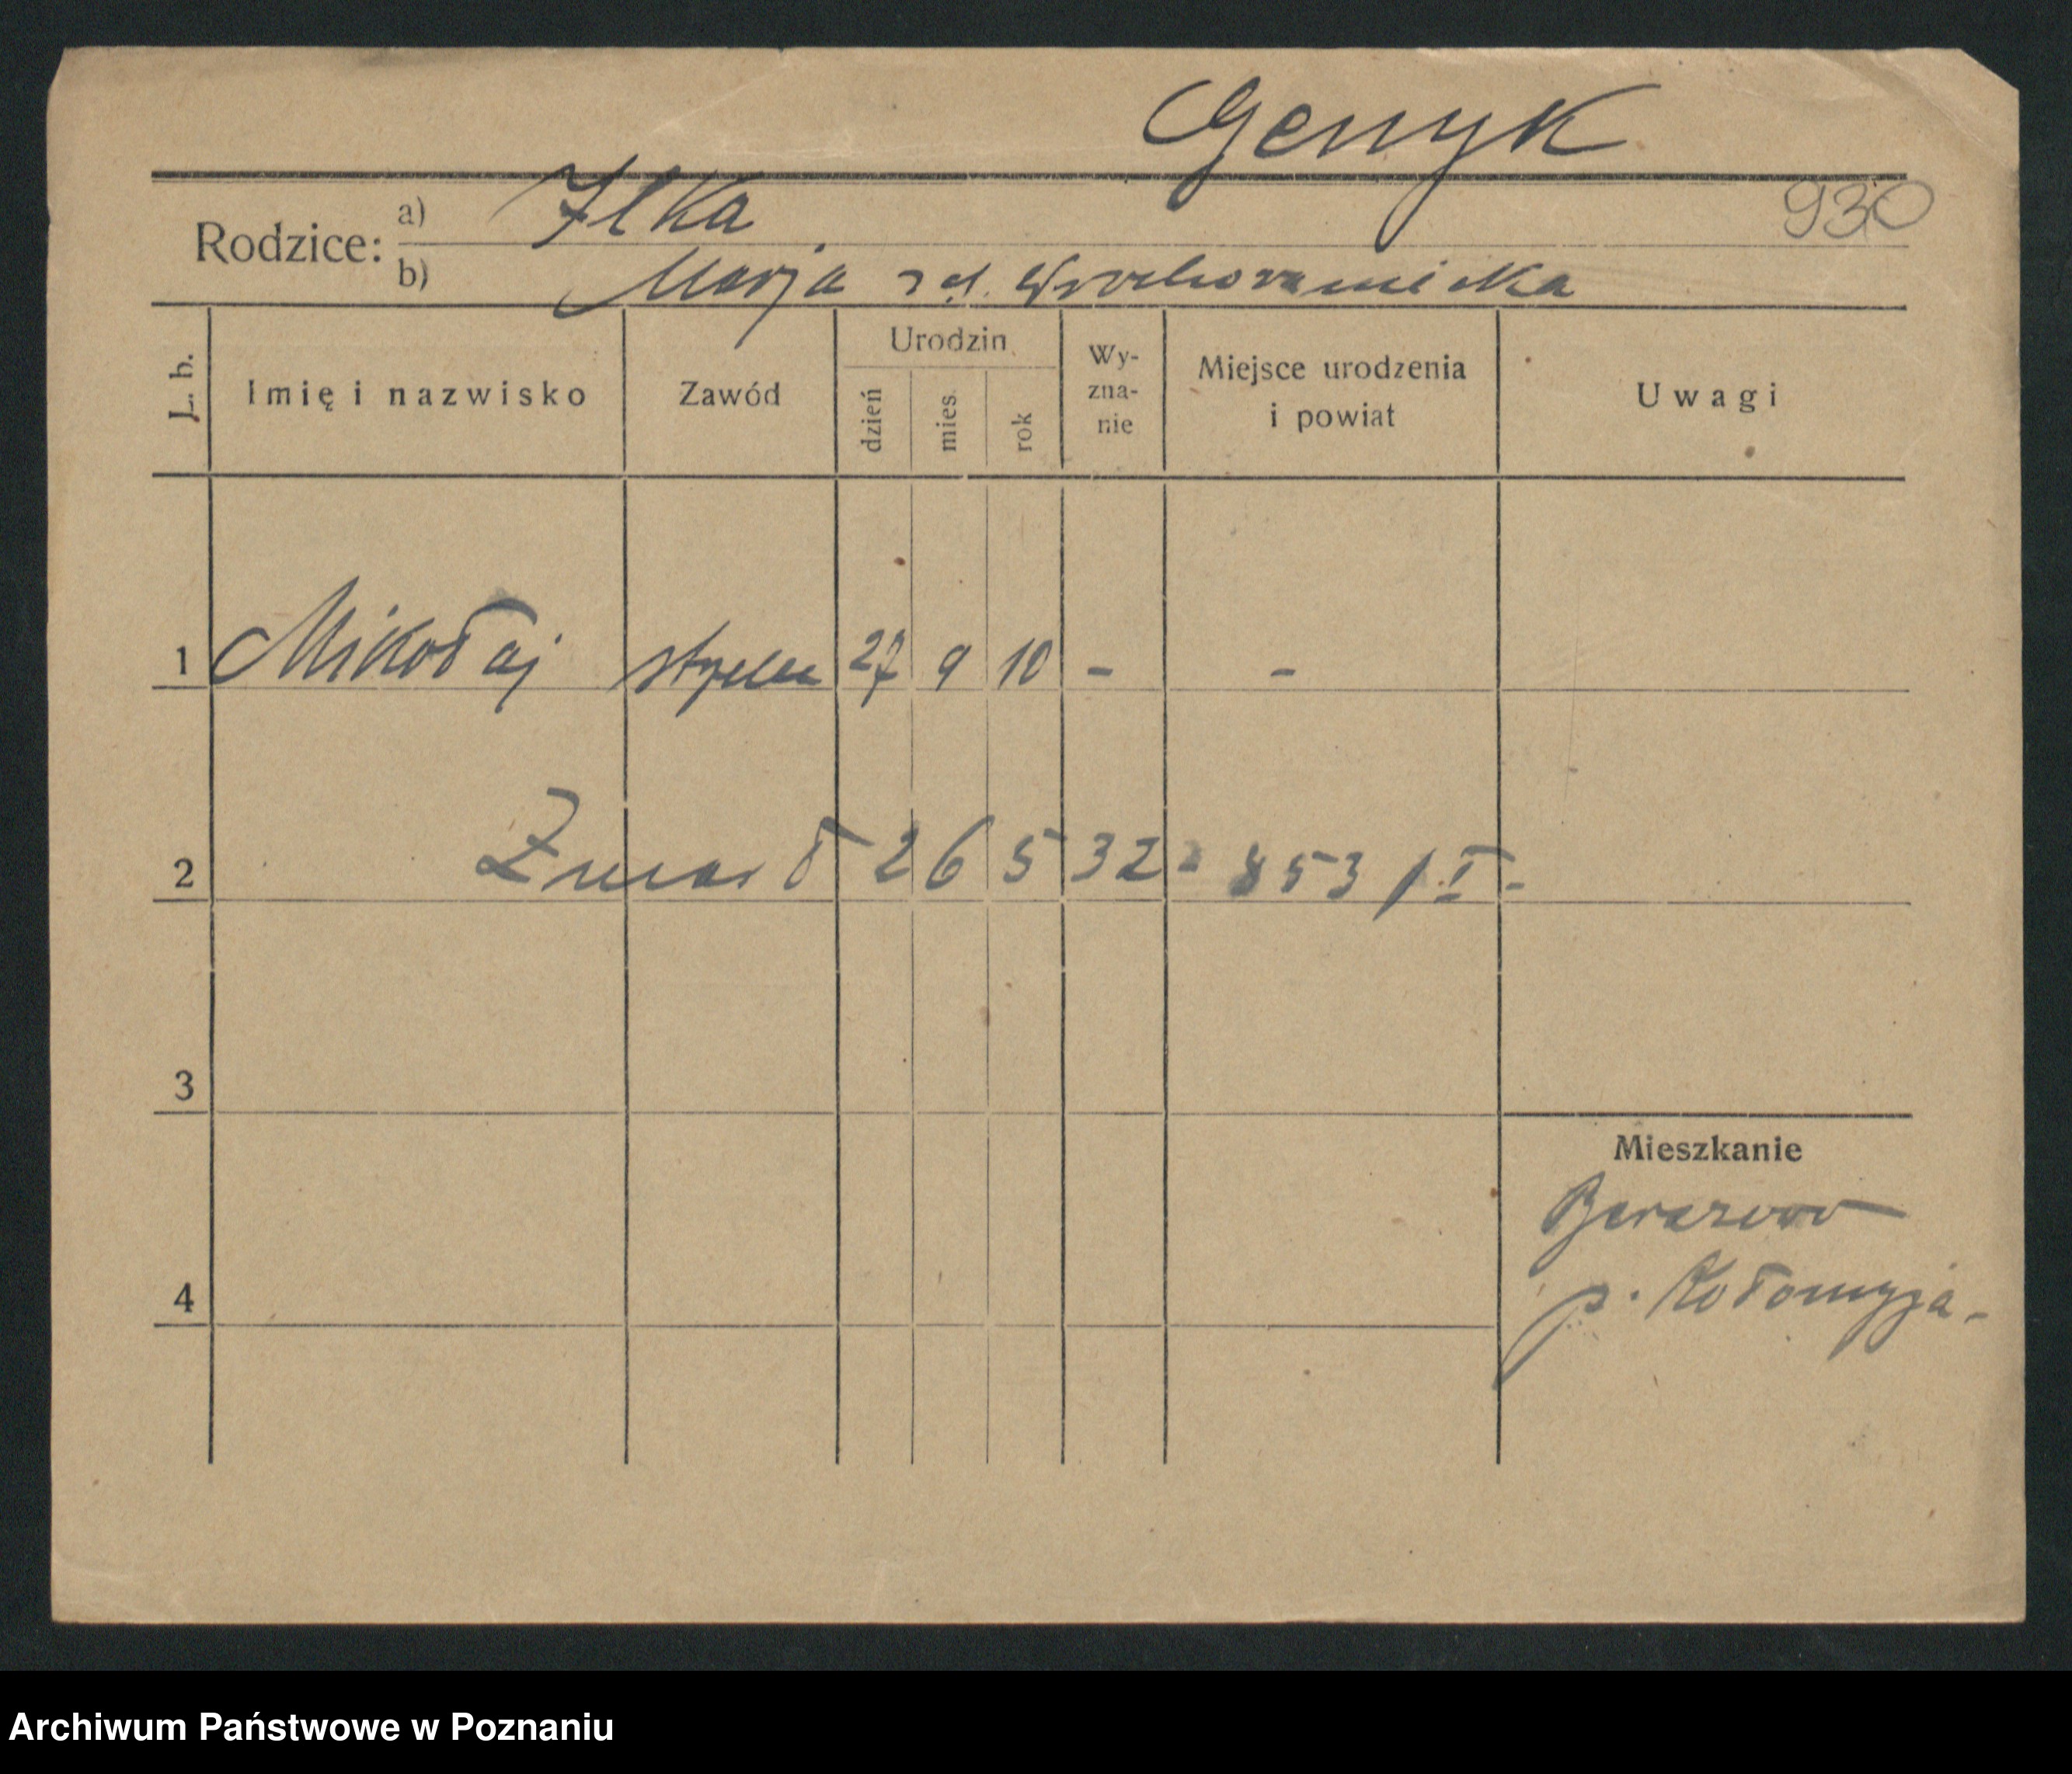 Genyk
930
Rodzice: a) Ilka
b) Marja
L. b.
Imię i nazwisko
Zawód
Urodzin
dzień
mies.
rok
Wy-
zna-
nie
Miejsce urodzenia
i powiat
Uwagi
1 Mikołaj strzelec 27 9 10 - -
2 Zmarł 26 5 32 - 853 / I -
3
Mieszkanie
p. Kołomyja -
4
Archiwum Państwowe w Poznaniu